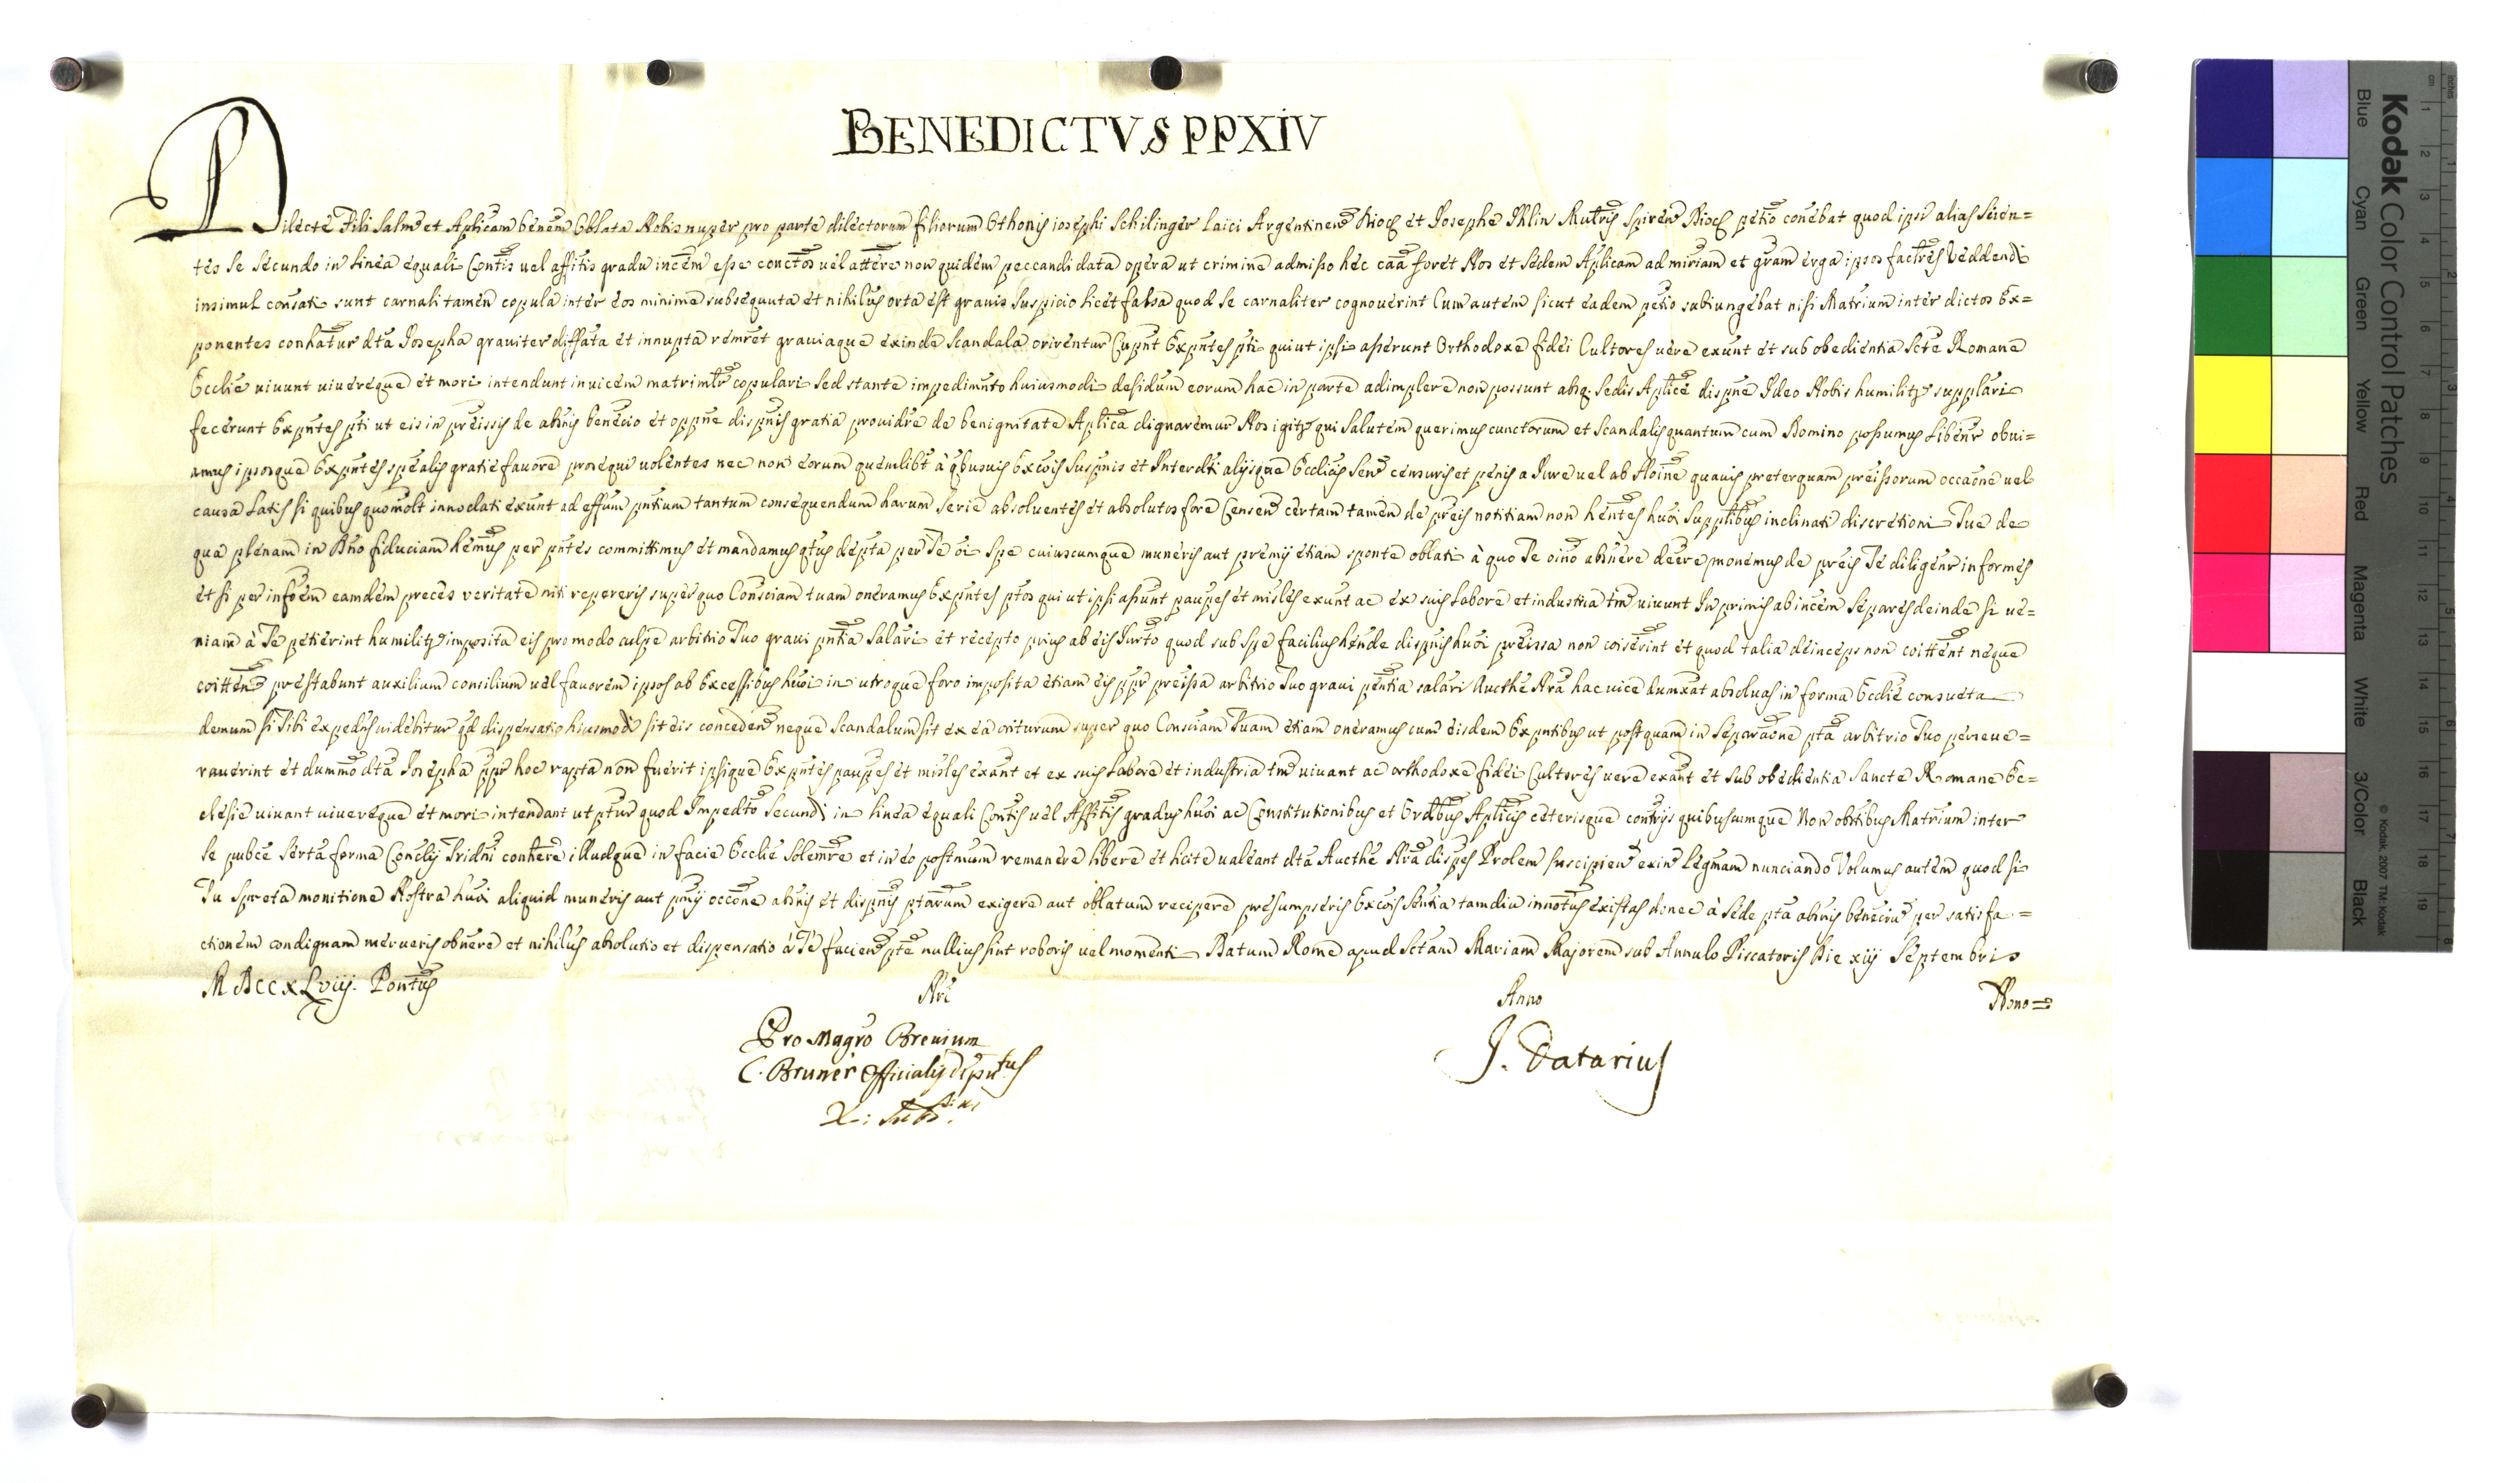 BENEDICTVS PPXIV
Dilecte Fili Salm̃ et Aplicam benem̃ Oblata Nobis nuper pro parte dilectorum filiorum Othonis iosephi Schilinger Laici Argentineñ Dioc̃ et Josephe Mulieris Spireñ Dioc̃ petio conebat quod ipsi alias scien=
tes se secundo in linea equali Contis vel affitis gradu incem esse conctos vel attere non quidem peccandi data opera ut crimine admisso hec caa foret Nos et Sedem Aplicam ad miriam et gram erga ipsos
insimul consati sunt carnali tamen copula inter eos minime subsequuta et nihilus orta est gravis suspicio licet falsa quod se carnaliter cognoverint Cum autem sicut eadem petio subiungebat nisi Matrium inter dictos Ex=
ponentes conhatur dta Josepha graviter diffata et innupta remret graviaque exinde scandala orirentur Cupnt Expntes pti qui ut ipsi aserunt Orthodoxe fidei Cultores vere exunt et sub obedientia Scte Romane
Ecclie vivunt vivereque et mori intendunt invicem matrimlr copulari sed stante impedimnto huiusmodi desidum eorum hac in parte adimplere non possunt absq. sedis Aplice dispne Ideo Nobis humilitr supplari
fecerunt Expntes pti ut eis in preissis de abnis benecio et oppne dispnis gratia providre de benignitate Aplica dignaremur Nos igitr qui salutem querimus cunctorum et scandalis quantum cum Domino possumus libenr obvi=
amus ipsosque Expntes spealis gratie favore prosequi volentes nec non eorum quemlibt à qbusvis Excois suspnis et Interdti alijsque Ecclicis Senõ censuris et penis a Jure vel ab Hoine quavis preterquam preissorum occaone vel
causa latis si quibus quomolt innodati exunt ad effum pntium tantum consequendum harum serie absolventes et absolutos fore Censenõ certam tamen de preis notitiam non hentes huoi supptibus inclinati discretioni Tue de
qua plenam in Dño fiduciam hemus per pntes committimus et mandamus qtus depta per Te oi spe cuiuscumque muneris aut premij etiam sponte oblati à quo Te oino abnere deere monemus de preis Te diligenr informes
et si per infoem eamdem preces veritate niti repereris super quo Consciam tuam oneramus Expntes ptos qui ut ipsi asunt paupes et misles exunt ac ex suis labore et industria tm vivunt In primis ab incem separes deinde si ve=
niam à Te petierint humilitr imposita eis pro modo culpe arbitrio Tuo gravi pntia salari et recepto prius ab eis Jurto quod sub spe facilius hende dispnis huoi preissa non coiserint et quod talia deinceps non coittent neque
coittenõ prestabunt auxilium consilium vel favorem ipsos ab Excessibus huoi in utroque foro imposita etiam eis ppr preissa arbitrio Tuo gravi pentia salari Aucthe Nra hac vice dumxat absolvas in forma Ecclie consueta
demum si Tibi expedns videbitur qd dispensatio hiusmodi sit eis concedenõ neque scandalum sit ex ea oriturum super quo Consciam Tuam etiam oneramus cum eisdem Expntibus ut postquam in separaone pta arbitrio Tuo perseve=
raverint et dummo dta Josepha ppr hoc rapta non fuerit ipsique Expntes paupes et misles exant et ex suis labore et industria tm vivant ac orthodoxe fidei Cultores vere exant et sub obedientia Sancte Romane Ec=
clesie vivant vivereque et mori intendant ut ptur quod Impedto secundi in linea equali Contis vel Affitis gradus huoi ac Constitutionibus et Ordbus Aplicis ceterisque contrijs quibuscumque Non obstibus Matrium inter
se pubce serta forma Concilij Tridni conhere illudque in facie Ecclie solemre et in eo postmum remanere libere et licite valeant dta Aucthe Nra dispes Prolem suscipienõ exinõ legmam nunciando Volumus autem quod si
Tu spreta monitione Nostra huoi aliquid muneris aut pmij occone abnis et dispnis ptarum exigere aut oblatum recipere presumpseris Excois sentia tamdiu innotus existas donec à sede pta abnis beneciũ per satisfa=
ctionem condignam merueris obnere et nihilus absolutio et dispensatio à Te facienõ pte nullius sint roboris vel momenti Datum Rome apud Sctam Mariam Majorem sub Annulo Piscatoris Die xiij Septembris
MDCCxLviij. Pontus Nri Anno Nono=
Pro Magro Brevium
C. Bruner Officialis Deputtus
J. Datarius